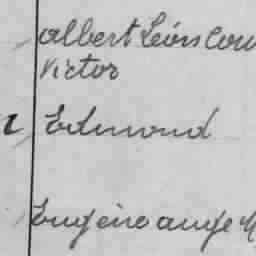 Albert Léon Cou
Victor
Edmond
Eugène ange